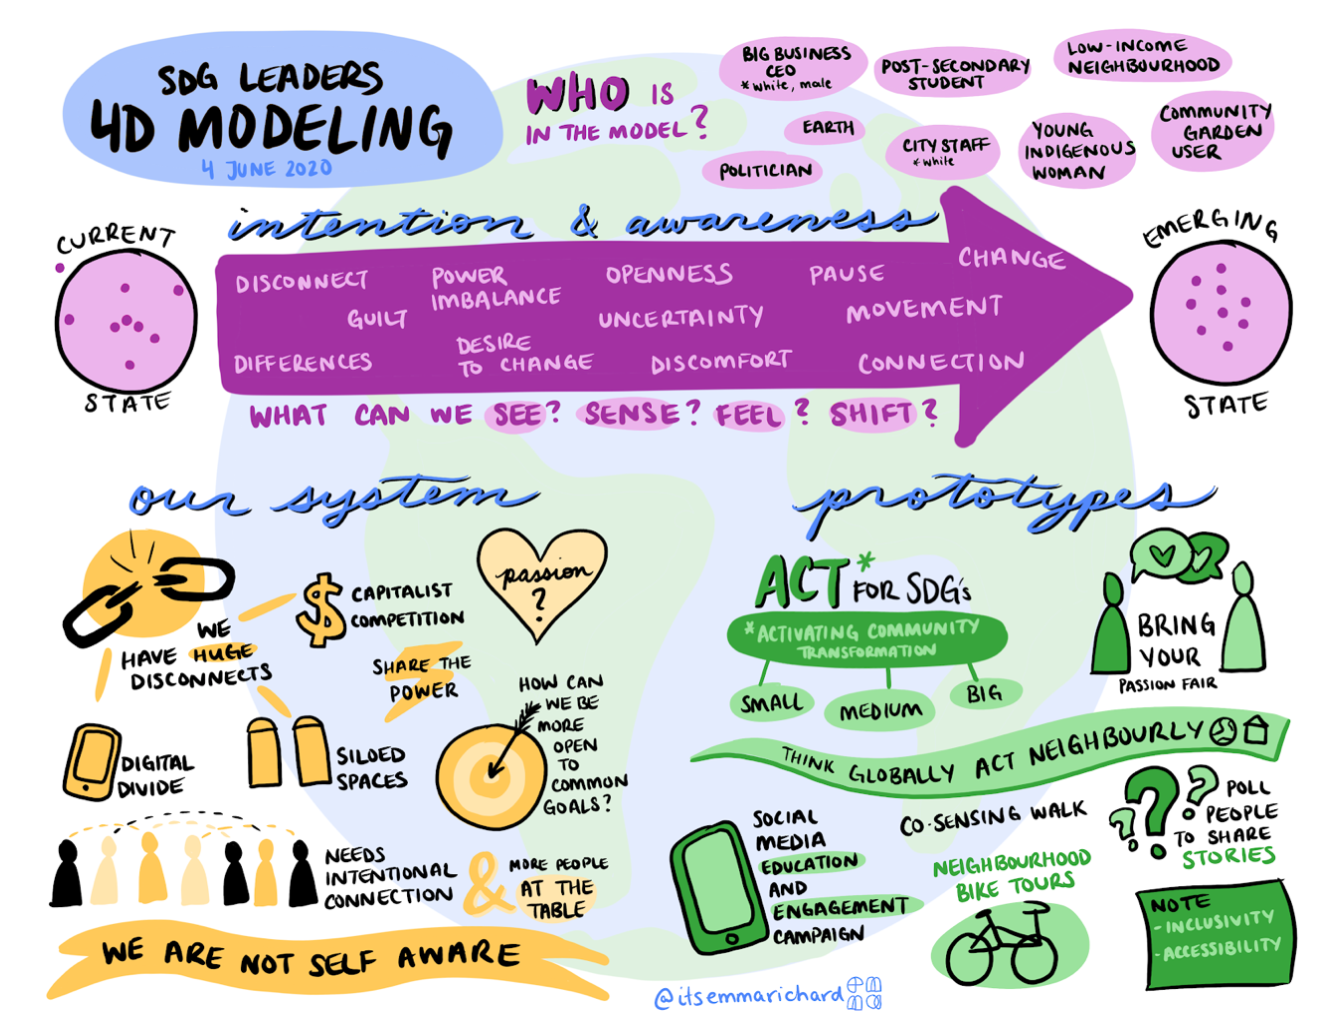 SDG LEADERS
4D MODELING
4 JUNE 2020
WHO IS
IN THE MODEL?
BIG BUSINESS
CEO
*white, male
POST-SECONDARY
STUDENT
LOW-INCOME
NEIGHBOURHOOD
EARTH
POLITICIAN
CITY STAFF
*white
YOUNG
INDIGENOUS
WOMAN
COMMUNITY
GARDEN
USER
CURRENT
STATE
intention & awareness
DISCONNECT
GUILT
DIFFERENCES
POWER
IMBALANCE
DESIRE
TO CHANGE
OPENNESS
UNCERTAINTY
DISCOMFORT
PAUSE
MOVEMENT
CONNECTION
CHANGE
EMERGING
STATE
WHAT CAN WE SEE? SENSE? FEEL? SHIFT?
our system
WE
HAVE HUGE
DISCONNECTS
$ CAPITALIST
COMPETITION
passion
?
SHARE THE
POWER
DIGITAL
DIVIDE
SILOED
SPACES
HOW CAN
WE BE
MORE
OPEN
TO
COMMON
GOALS?
NEEDS
INTENTIONAL
CONNECTION
&
MORE PEOPLE
AT THE
TABLE
WE ARE NOT SELF AWARE
prototypes
ACT* FOR SDG's
*ACTIVATING COMMUNITY
TRANSFORMATION
SMALL
MEDIUM
BIG
BRING
YOUR
PASSION FAIR
THINK GLOBALLY ACT NEIGHBOURLY
SOCIAL
MEDIA
EDUCATION
AND
ENGAGEMENT
CAMPAIGN
CO-SENSING WALK
NEIGHBOURHOOD
BIKE TOURS
? ? ?
POLL
PEOPLE
TO SHARE
STORIES
NOTE
- INCLUSIVITY
- ACCESSIBILITY
@itsemmarichard